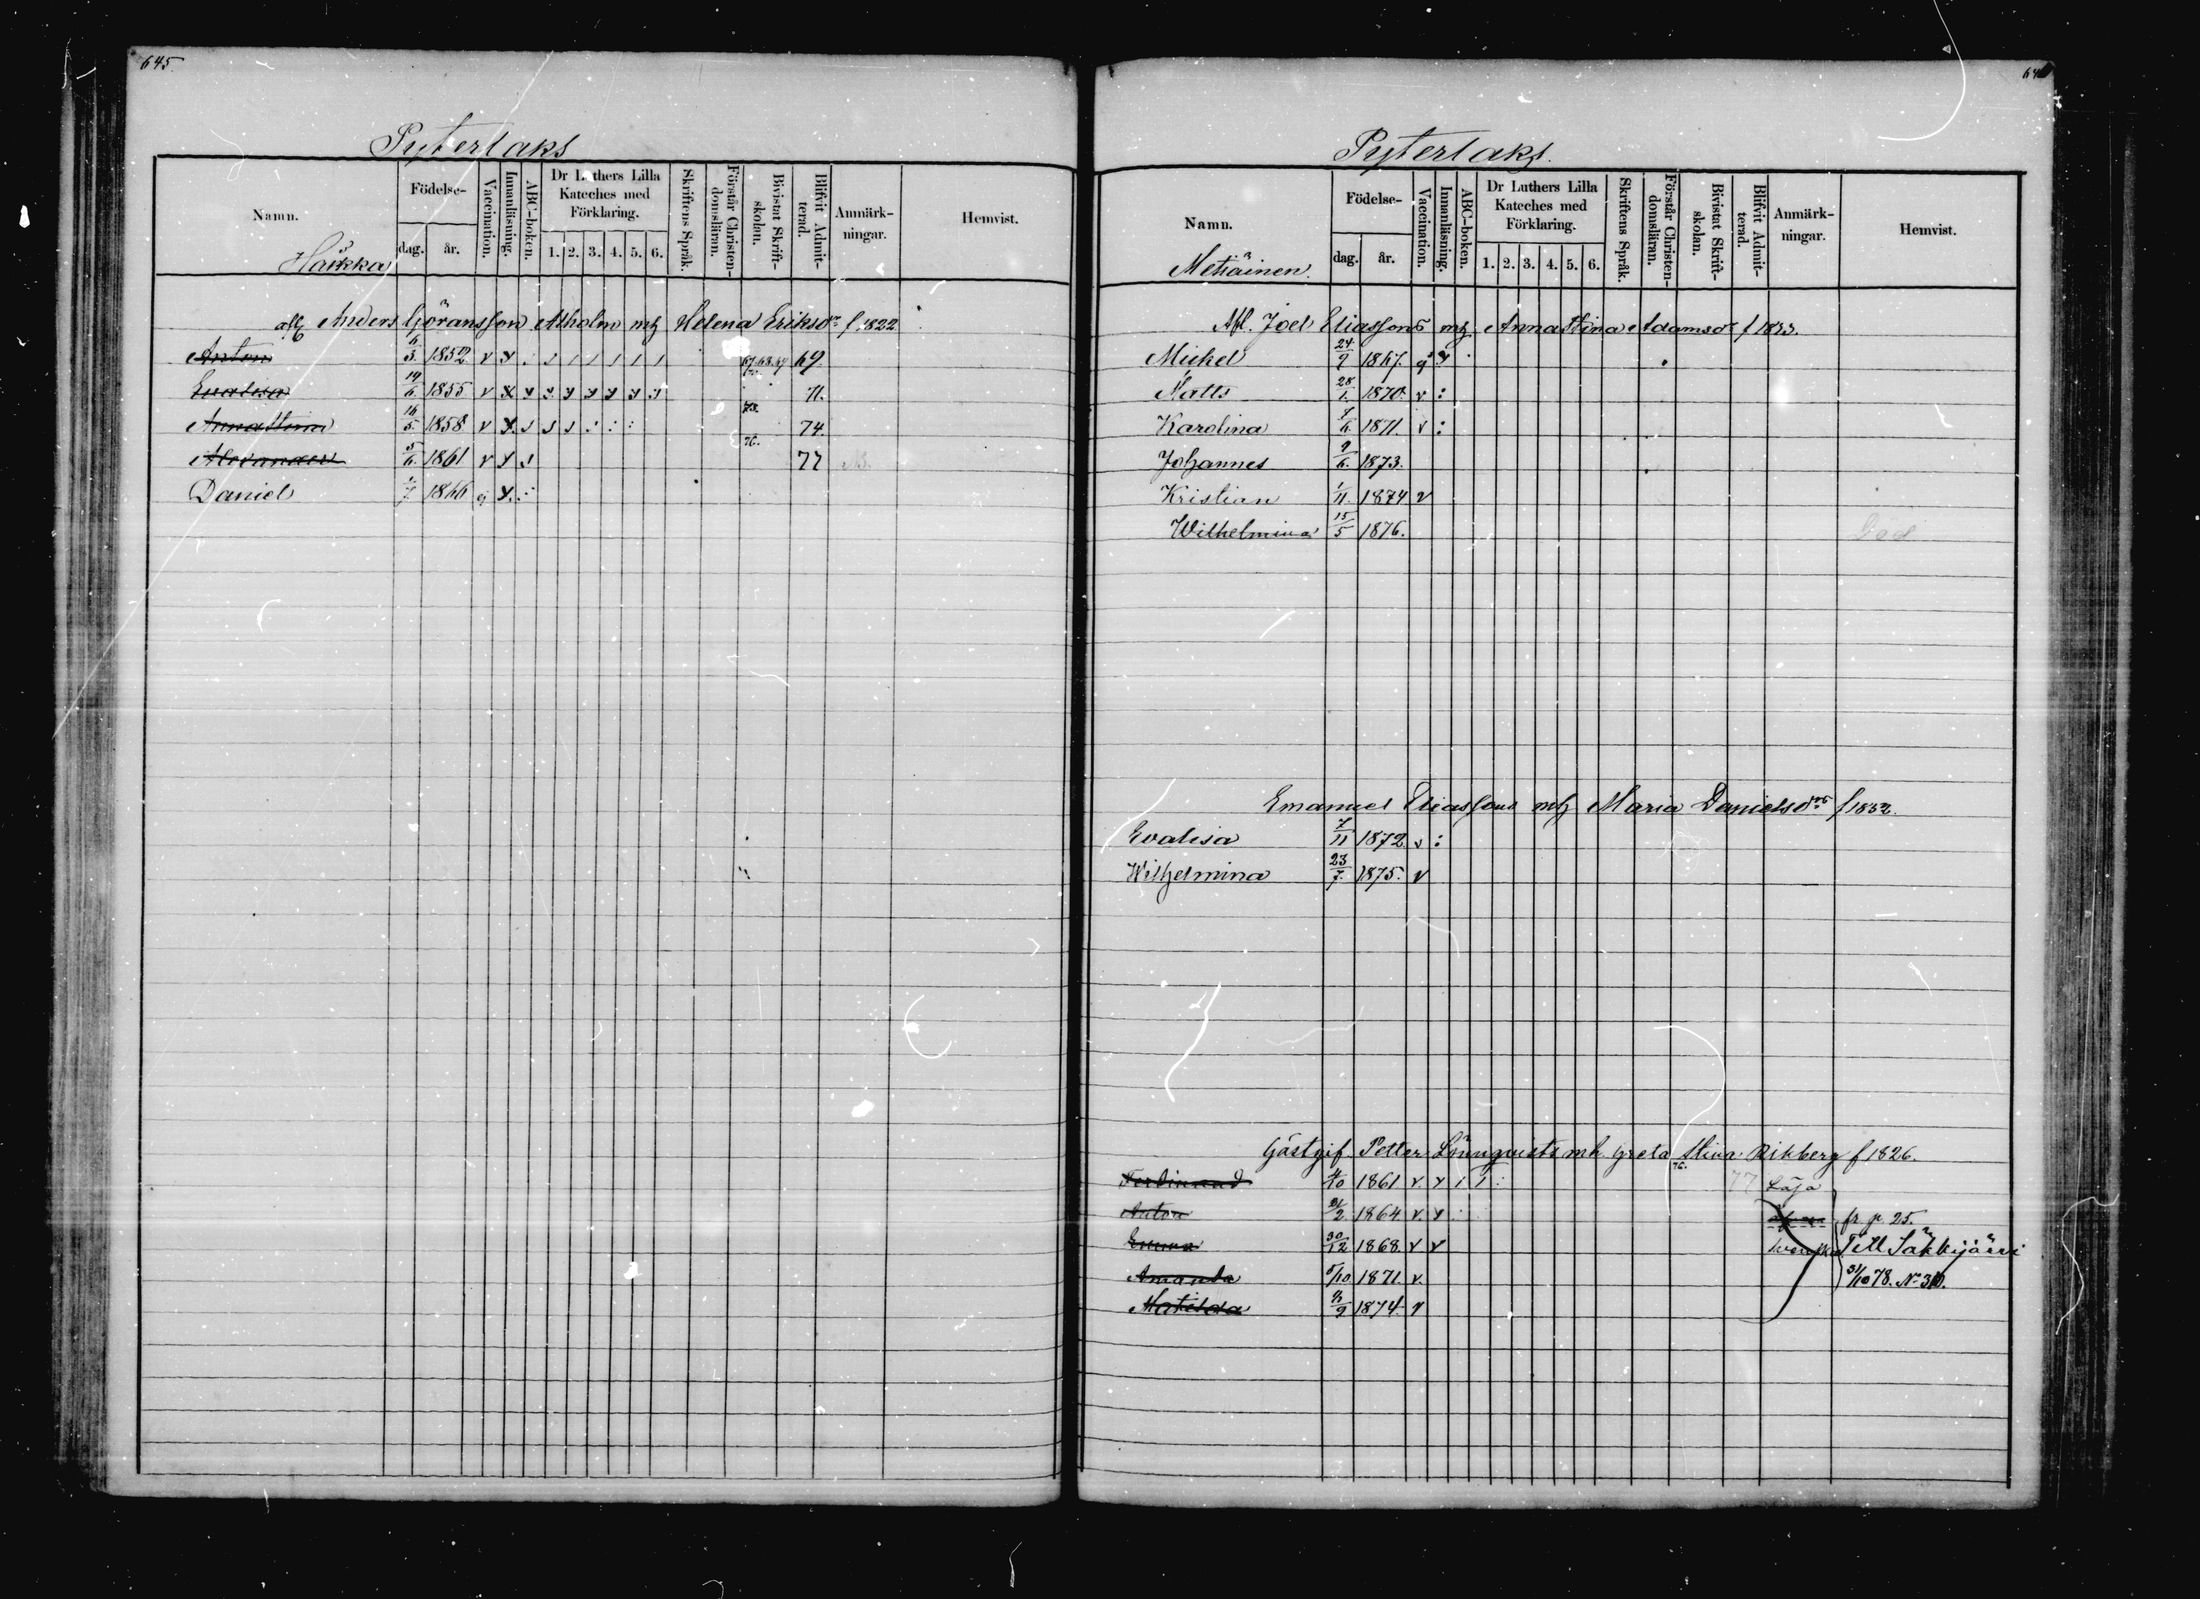 645.
Pyterlaks
Namn. Födelse- dag. år. Vaccination. Innanläsning. ABC-boken. Dr Luthers Lilla Kateches med Förklaring. 1. 2. 3. 4. 5. 6. Skriftens Språk. Förstår Christen-domsläran. Bivistat Skrift-skolan. Blifvit Admit-terad. Anmärk-ningar. Hemvist.
Häikkä
afl Anders Göransson Asholm mh Helena Eriksdr f 1822
Anton 6/3. 1852 v y 69.
Evalisa 14/6. 1855 v x y y y y y y y 71.
Anna Stina 16/5. 1858 v y. 74.
Alexander 5/6. 1861 v y 77
Daniel 1/7 1866 q y.
Pyterlaks.
Namn. Födelse- dag. år. Vaccination. Innanläsning. ABC-boken. Dr Luthers Lilla Kateches med Förklaring. 1. 2. 3. 4. 5. 6. Skriftens Språk. Förstår Christen-domsläran. Bivistat Skrift-skolan. Blifvit Admit-terad. Anmärk-ningar. Hemvist.
Metiäinen.
Afl. Joel Eliassons mh Anna Stina Adamsdr f 1833.
Mickel 24/9 1867. q y
Matts 28/1. 1870. v :
Karolina 7/6. 1871. v :
Johannes 9/6. 1873.
Kristian 1/11. 1874 v
Wilhelmina 15/5 1876.
Emanuel Eliassons mh Maria Danielsdrs f 1832.
Evalisa 7/11 1872 v :
Wilhelmina 23/7. 1875. v
Gästgif. Petter Lönnqvists mh. Greta Stina Rikberg f 1826.
Ferdinand 4/10 1861 v. y 1 1 : 76. 77 Läja
Anton 21/2. 1864 v. y : fr p. 25.
Emma 30/12 1868 v v Svenska Till Säkkijärvi
Amanda 5/10 1871 v. 31/10 78. No 30.
Matilda 1874 v